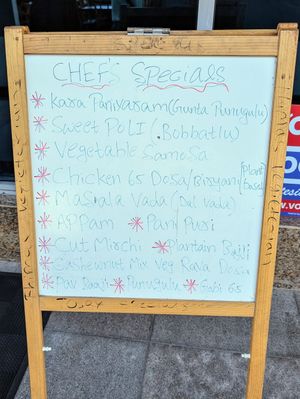 CHEF'S SPECIALS
* Kara Panivaram (Gunta Punugulu)
* Sweet Poli (Bobbatlu)
* Vegetable Samosa
* Chicken 65 Dosa/Biryani (Plant Based)
* Masala Vada (Dal Vada)
* Appam * Pani Puri
* Cut Mirchi * Plantain Bajji
* Cashewnut Mix Veg Rava Dosa
* Pav Baaji * Punugulu * Gobi 65
VO